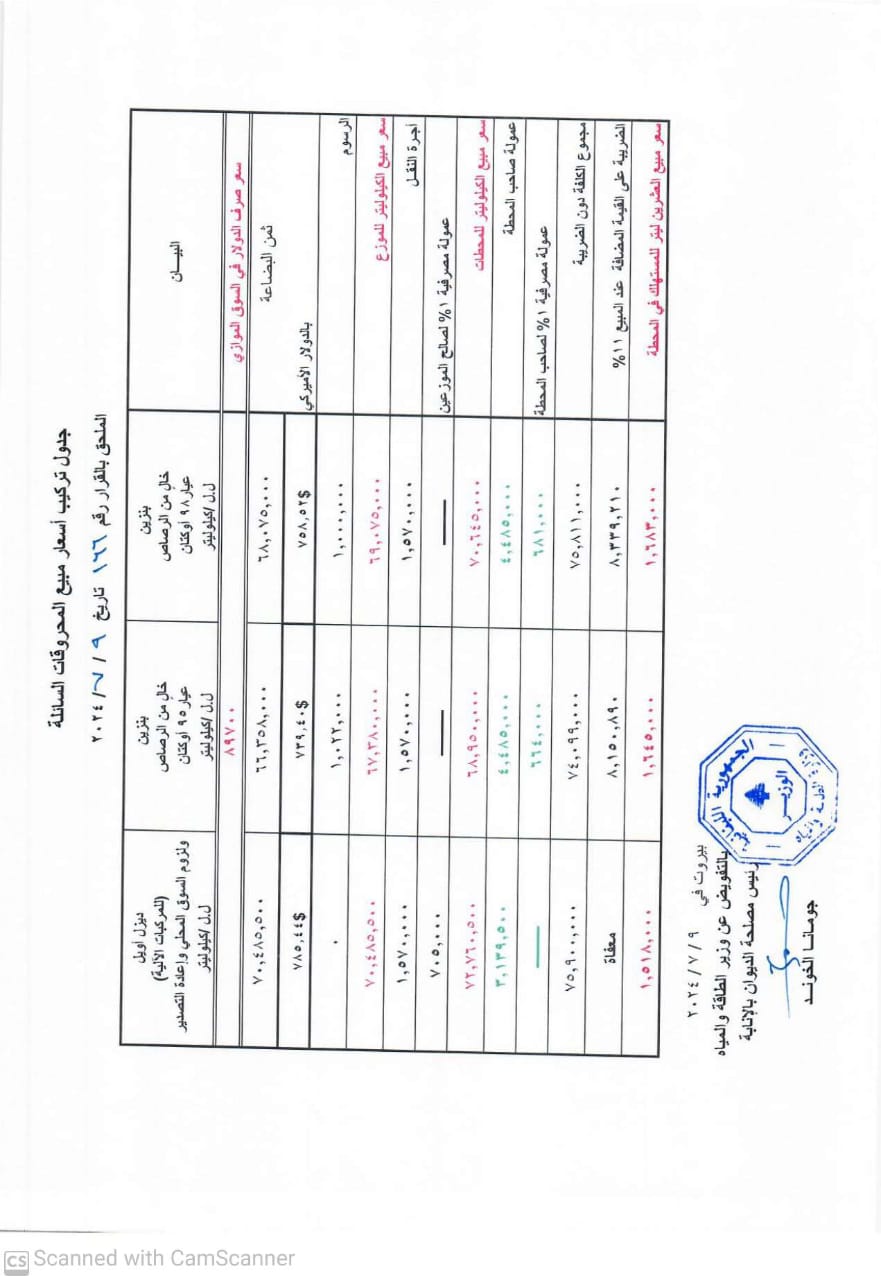 جدول تركيب أسعار مبيع المحروقات السائلة
الملحق بالقرار رقم ١٦٦ تاريخ ٩ / ٧ / ٢٠٢٤
البيان
بنزين
خالٍ من الرصاص
عيار ٩٨ أوكتان
ل.ل /كيلوليتر
بنزين
خالٍ من الرصاص
عيار ٩٥ أوكتان
ل.ل /كيلوليتر
ديزل أويل
(للمركبات الآلية)
ولزوم السوق المحلي وإعادة التصدير
ل.ل /كيلوليتر
سعر صرف الدولار في السوق الموازي
٨٩٧٠٠
ثمن البضاعة
٦٨,٠٧٥,٠٠٠
٦٦,٣٥٨,٠٠٠
٧٠,٤٨٥,٥٠٠
بالدولار الأميركي
٧٥٨,٥٢$
٧٣٩,٤٠$
٧٨٥,٤٤$
الرسوم
١,٠٠٠,٠٠٠
١,٠٢٢,٠٠٠
٠
سعر مبيع الكيلوليتر للموزع
٦٩,٠٧٥,٠٠٠
٦٧,٣٨٠,٠٠٠
٧٠,٤٨٥,٥٠٠
أجرة النقل
١,٥٧٠,٠٠٠
١,٥٧٠,٠٠٠
١,٥٧٠,٠٠٠
عمولة مصرفية ١% لصالح الموزعين
٧٠٥,٠٠٠
سعر مبيع الكيلوليتر للمحطات
٧٠,٦٤٥,٠٠٠
٦٨,٩٥٠,٠٠٠
٧٢,٧٦٠,٥٠٠
عمولة صاحب المحطة
٤,٤٨٥,٠٠٠
٤,٤٨٥,٠٠٠
٣,١٣٩,٥٠٠
عمولة مصرفية ١% لصاحب المحطة
٦٨١,٠٠٠
٦٦٤,٠٠٠
مجموع الكلفة دون الضريبة
٧٥,٨١١,٠٠٠
٧٤,٠٩٩,٠٠٠
٧٥,٩٠٠,٠٠٠
الضريبة على القيمة المضافة عند المبيع ١١%
٨,٣٣٩,٢١٠
٨,١٥٠,٨٩٠
معفاة
سعر مبيع العشرين ليتر للمستهلك في المحطة
١,٦٨٣,٠٠٠
١,٦٤٥,٠٠٠
١,٥١٨,٠٠٠
بيروت في ٩ / ٧ / ٢٠٢٤
بالتفويض عن وزير الطاقة والمياه
رئيس مصلحة الديوان بالإنابة
جومانا الخوند
الجمهورية اللبنانية
الوزير
وزارة الطاقة والمياه
CS Scanned with CamScanner